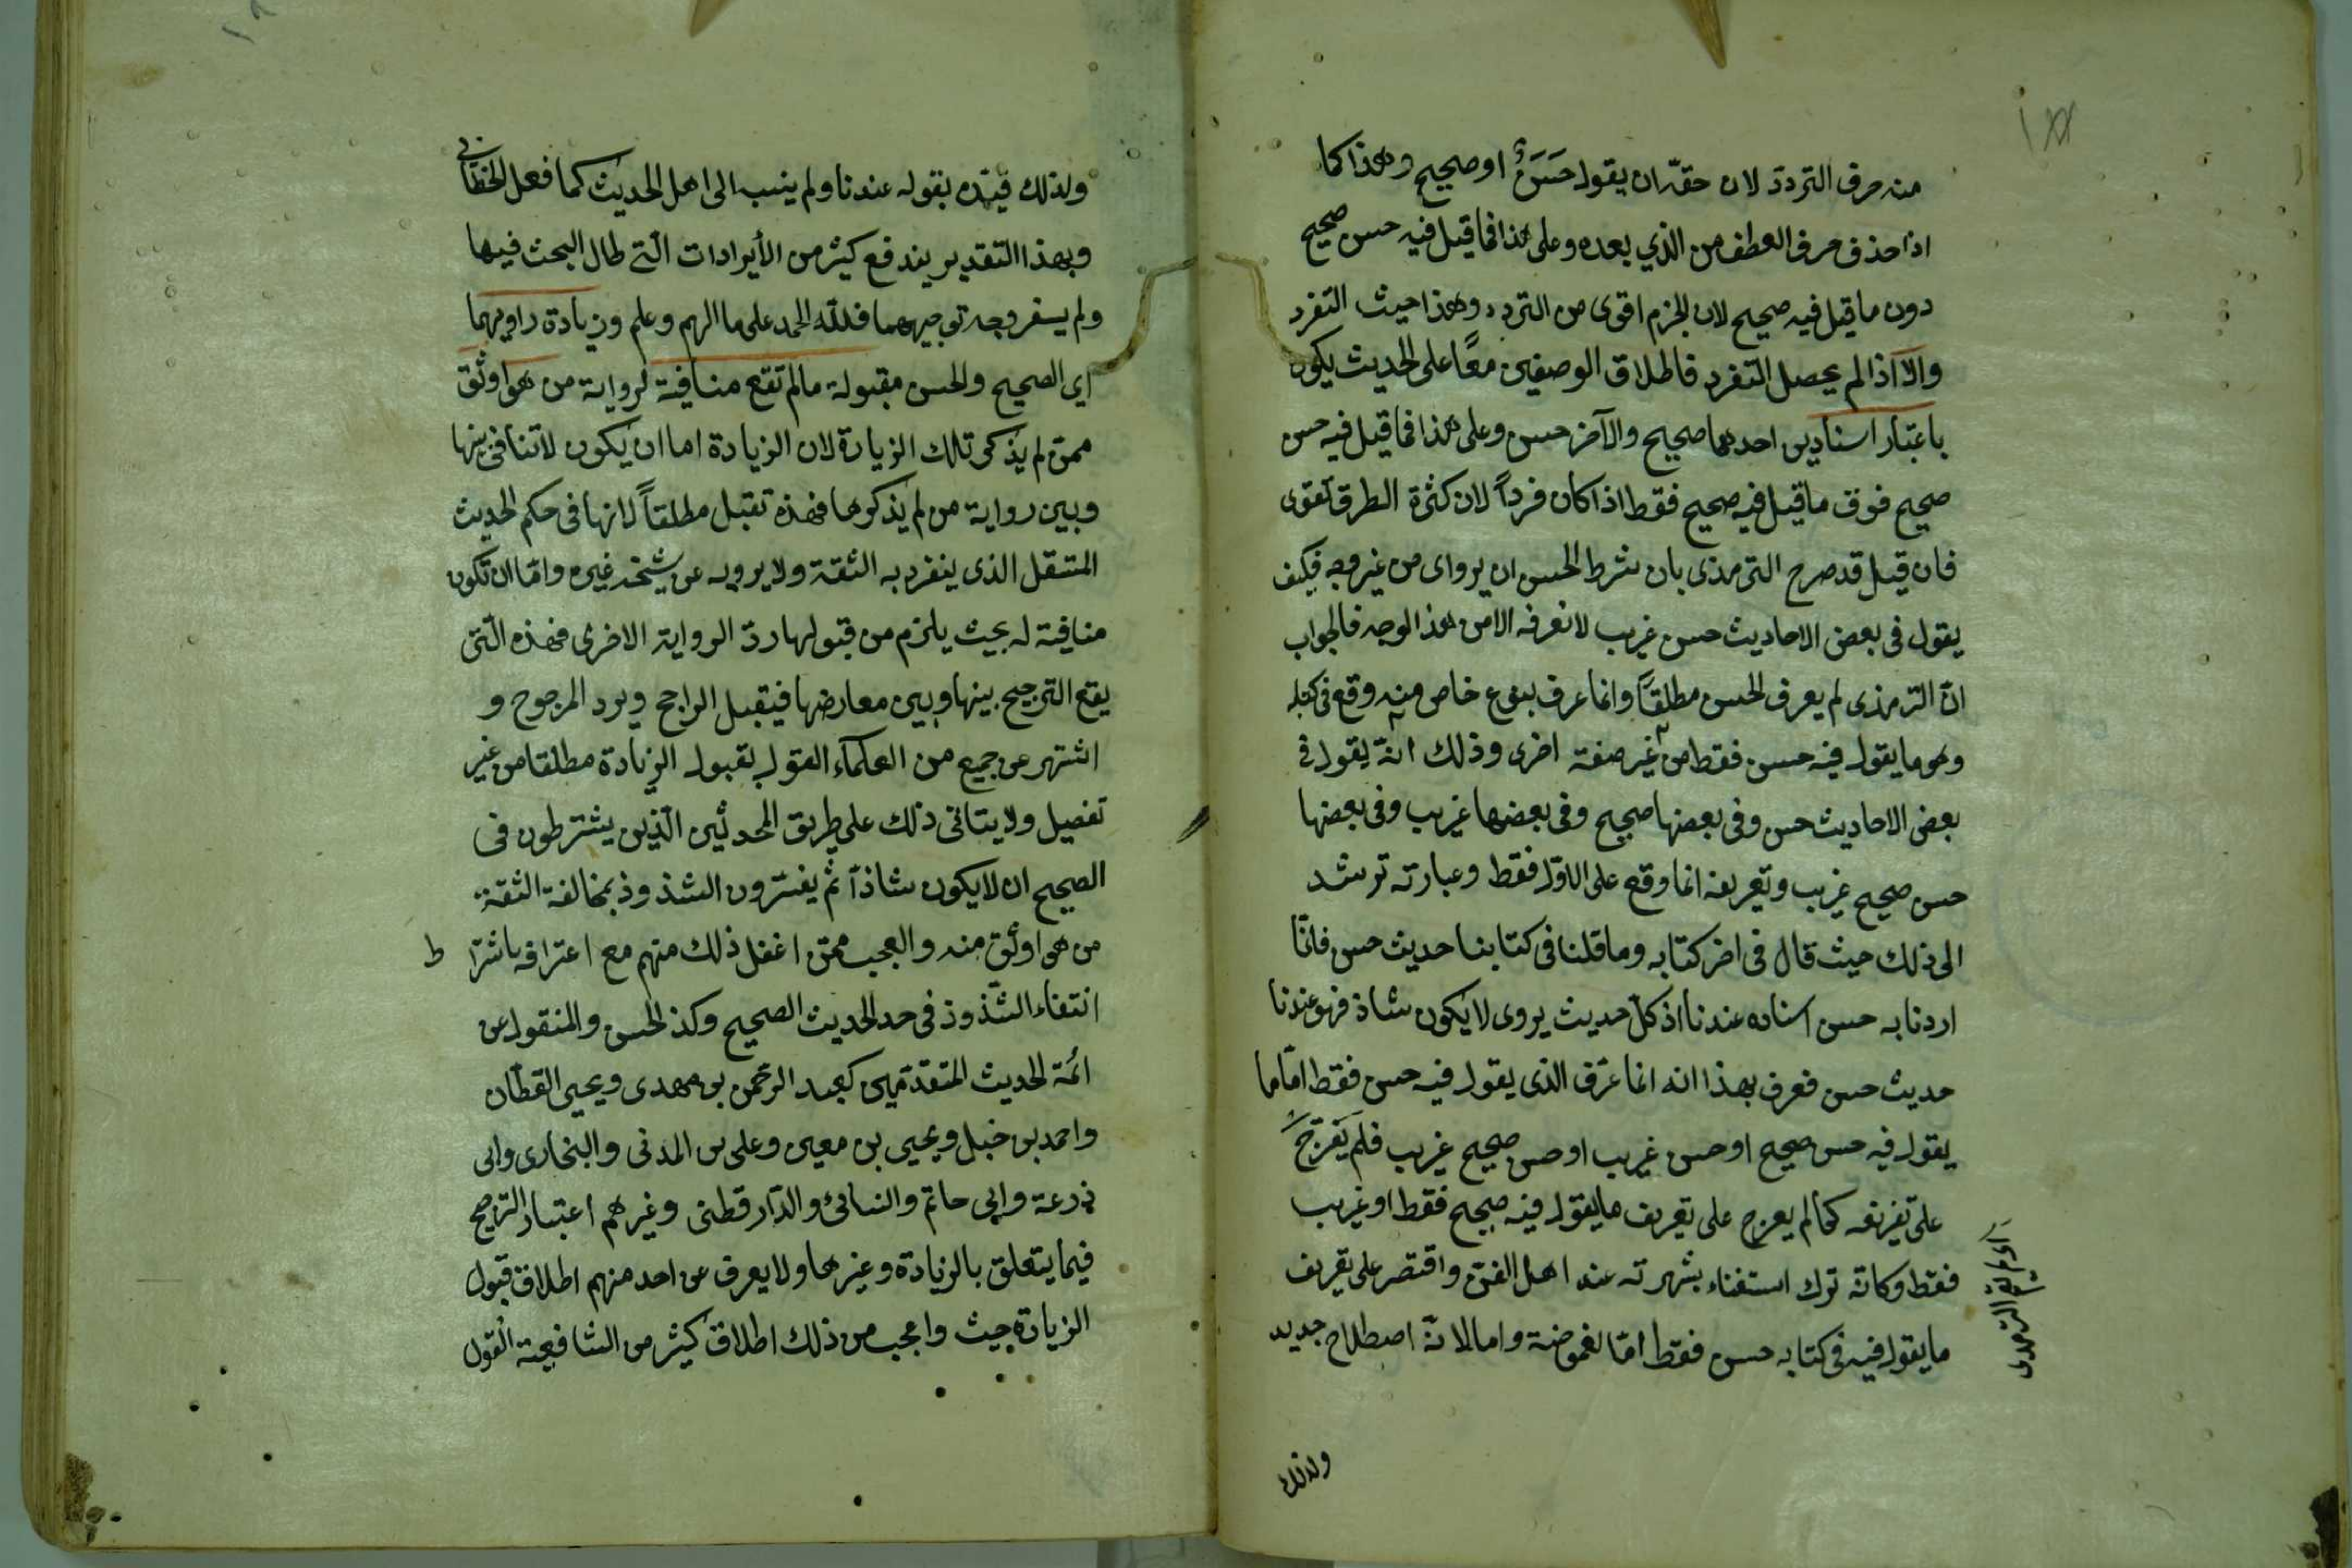 منه حرف التردد لان حقه ان يقول حَسَنٌ او صحيح وهذا كما
اذا حذف حرف العطف من الذي بعده وعلى هذا فما قيل فيه حسن صحيح
دون ما قيل فيه صحيح لان الجزم اقوى من التردد وهذا حيث التفرد
والا اذا لم يحصل التفرد فاطلاق الوصفين معًا على الحديث يكون
باعتبار اسنادين احدهما صحيح والآخر حسن وعلى هذا فما قيل فيه حسن
صحيح فوق ما قيل فيه صحيح فقط اذا كان فرداً لان كثرة الطرق تقوى
فان قيل قد صرح الترمذى بان شرط الحسن ان يروى من غير وجه فكيف
يقول فى بعض الاحاديث حسن غريب لا نعرفه الا من هذا الوجه فالجواب
انّ الترمذى لم يعرف الحسن مطلقاً وانما عرف بنوع خاص منه وقع فى كتابه
وهو ما يقول فيه حسن فقط من غير صفة اخرى وذلك انّه يقول فى
بعض الاحاديث حسن وفى بعضها صحيح وفى بعضها غريب وفى بعضها
حسن صحيح غريب وتعريفه انما وقع على الاوّل فقط وعبارته ترشد
الى ذلك حيث قال فى اخر كتابه وما قلنا فى كتابنا حديث حسن فانّا
اردنا به حسن اسناده عندنا اذ كلّ حديث يروى لا يكون شاذ فهو عندنا
حديث حسن فعرف بهذا انه انما عرّف الذى يقول فيه حسن فقط امّا ما
يقول فيه حسن صحيح او حسن غريب او حسن صحيح غريب فلم يعرّج
على تعريفه كما لم يعرج على تعريف ما يقول فيه صحيح فقط او غريب
فقط وكانّه ترك استغناء بشهرته عند اهل الفنّ واقتصر على تعريف
ما يقول فيه فى كتابه حسن فقط امّا لغموضة واما لانّه اصطلاح جديد
ولذلك
ولذلك قيّده بقوله عندنا ولم ينسب الى اهل الحديث كما فعل الخطّابى
وبهذا التقدير يندفع كثير من الأيرادات الّتى طال البحث فيها
ولم يسفر وجه توجيهها فللّه الحمد على ما الهم وعلم وزيادة راويهما
اي الصحيح والحسن مقبولة ما لم تقع منافية لرواية من هو اوثق
ممن لم يذكر تلك الزيادة لان الزيادة اما ان يكون لا تنافى بينها
وبين رواية من لم يذكرها فهذه تقبل مطلقاً لانها فى حكم الحديث
المستقل الذى ينفرد به الثقة ولا يرويه عن شيخه غيره وامّا ان تكون
منافية له بحيث يلزم من قبولها ردّ الرواية الاخرى فهذه الّتى
يقع الترجيح بينها وبين معارضها فيقبل الراجح ويرد المرجوح و
اشتهر عن جميع من العلمآء القول بقبول الزيادة مطلقا من غير
تفصيل ولا يتاتى ذلك على طريق المحدثين الّذين يشترطون فى
الصحيح ان لا يكون شاذاً ثم يفسّرون الشذوذ بمخالفة الثقة
من هو اوثق منه والعجب ممّن اغفل ذلك منهم مع اعترافه باشترا ط
انتفاء الشّذوذ فى حد الحديث الصحيح وكذ الحسن والمنقول عن
ائمّة الحديث المتقدّمين كعبد الرحمن بن مهدى ويحيى القطّان
واحمد بن حنبل ويحيى بن معين وعلى بن المدنى والبخارى وابى
زرعة وابى حاتم والنسائى والدّارقطنى وغيرهم اعتبار الترجيح
فيما يتعلق بالزيادة وغيرها ولا يعرف عن احد منهم اطلاق قبول
الزيادة حيث واعجب من ذلك اطلاق كثير من الشافعيّة القول